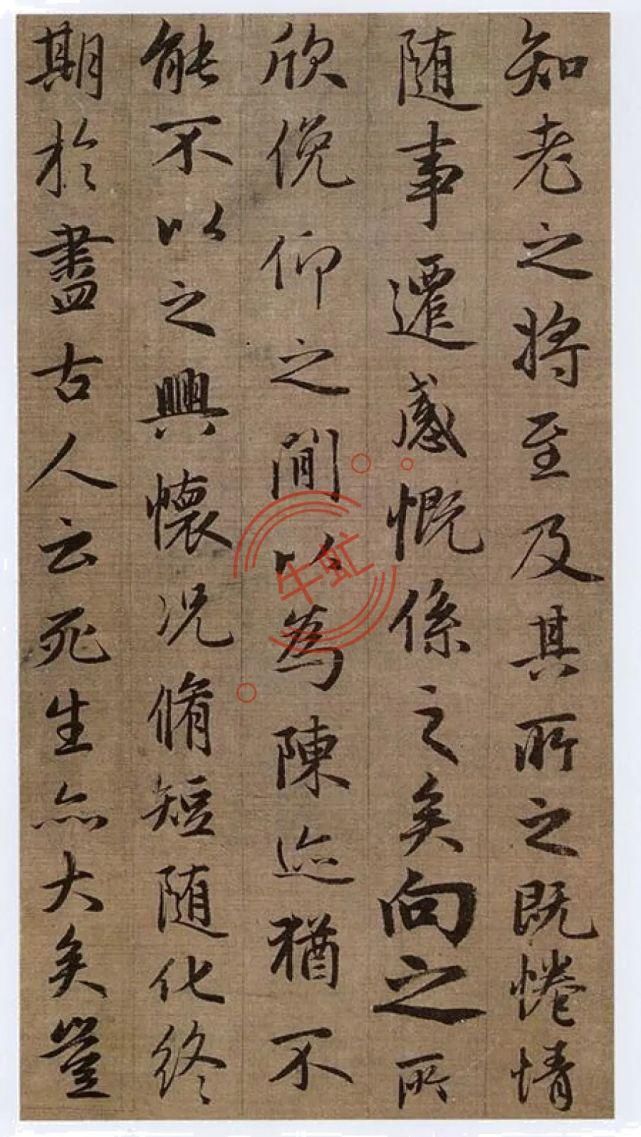 知老之將至及其所之既惓情
随事遷感慨係之矣向之所
欣俛仰之間以為陳迹猶不
能不以之興懷况脩短随化終
期於盡古人云死生亦大矣豈
牛虹